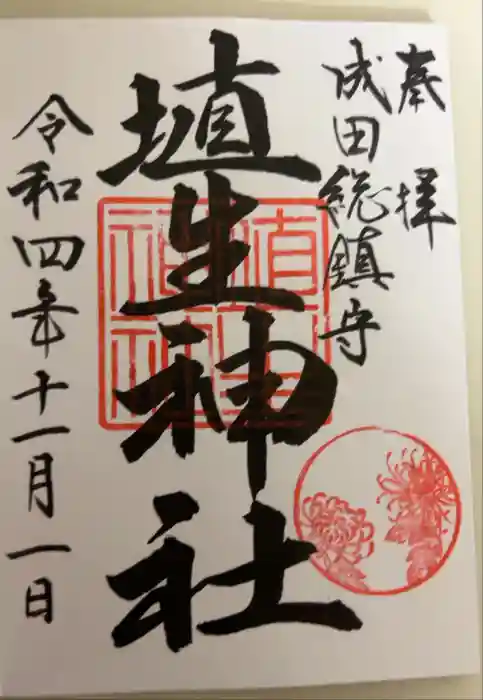 奉拝
成田総鎮守
埴生神社
令和四年十一月一日